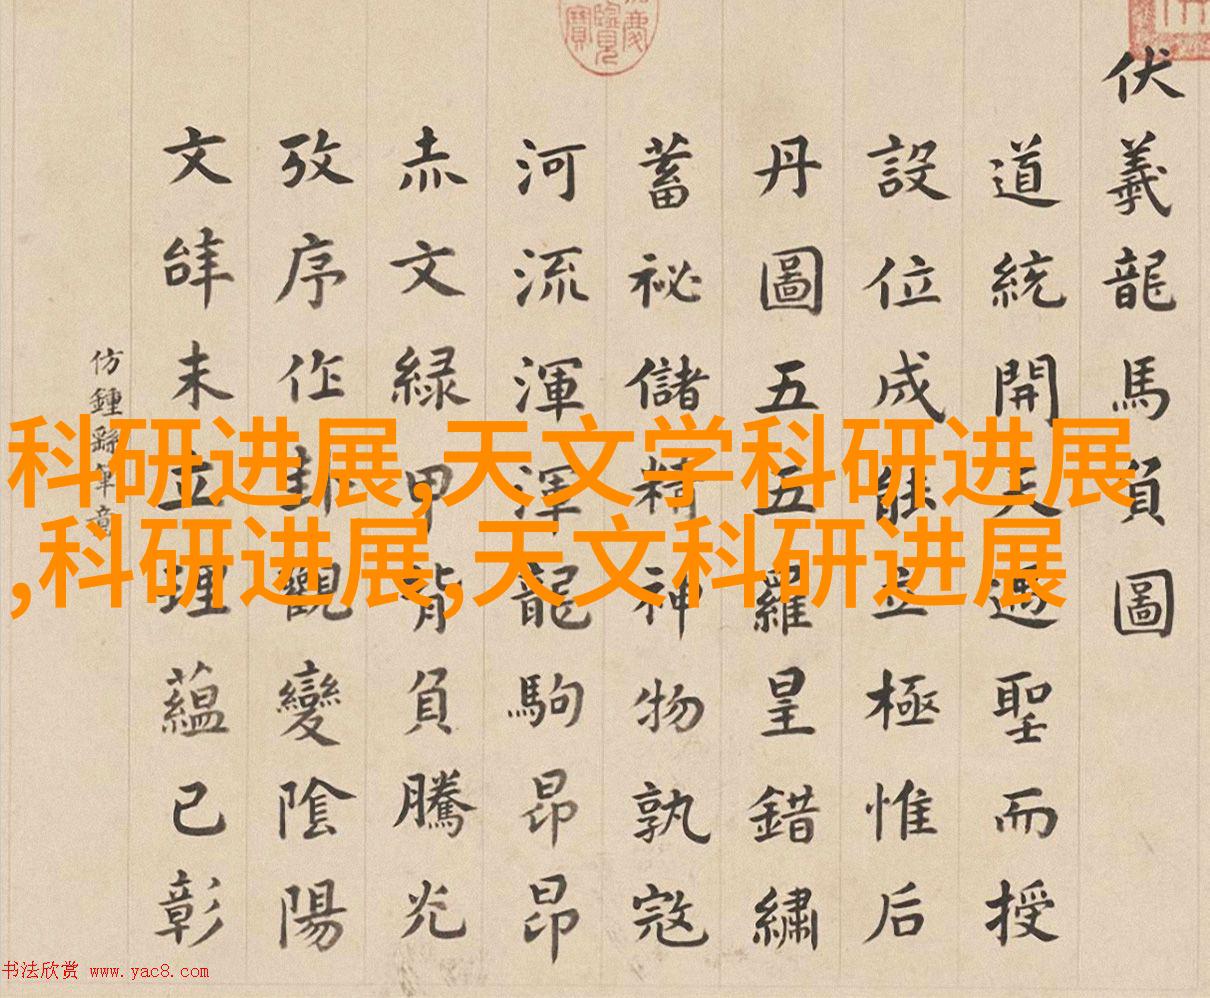 伏羲龍馬負圖
道統開天遞聖而授
設位成能立極惟后
丹圖五五羅皇錯繡
蓄祕儲精神物孰寇
河流渾渾龍駒昂昂
赤文緑甲背負騰光
攷序作卦觀變陰陽
文䇞未立理蘊已彰
仿鍾繇筆意
科研进展,天文学科研进展
,科研进展,天文科研进展
书法欣赏 www.yac8.com